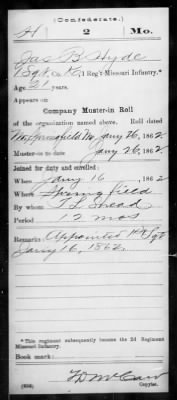 (Confederate.)
H 2 Mo.
Jas B Hyde
1 Sgt, Co. K, 1 Reg't Missouri Infantry.*
Age 21 years.
Appears on
Company Muster-in Roll
of the organization named above. Roll dated
Springfield Mo, Jany 26, 1862.
Muster-in to date Jany 26, 1862.
Joined for duty and enrolled:
When Jany 16, 1862.
Where Springfield
By whom T L Snead
Period 12 mos
Remarks: Appointed 1st Sgt
Jany 16, 1862.
*This regiment subsequently became the 2d Regiment
Missouri Infantry.
Book mark:
Copyist.